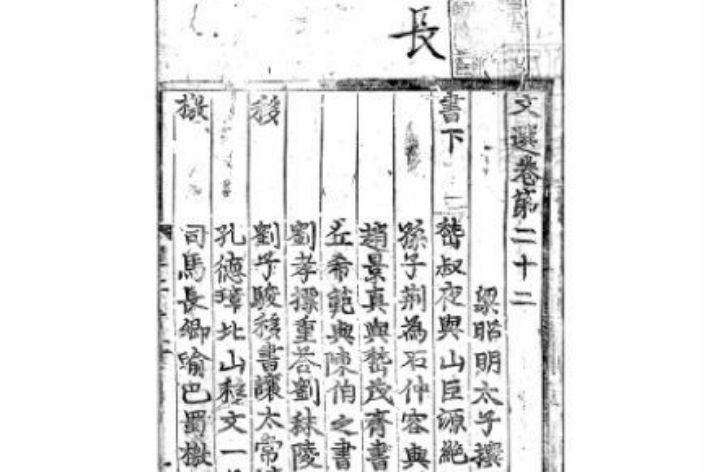 長
文選卷第二十二
梁昭明太子撰
書下
嵇叔夜與山巨源絶
孫子荆為石仲容與
趙景真與嵇茂齊書
丘希範與陳伯之書
劉孝標重荅劉秣陵
移
劉子駿移書讓太常
孔德璋北山移文一
檄
司馬長卿喻巴蜀檄